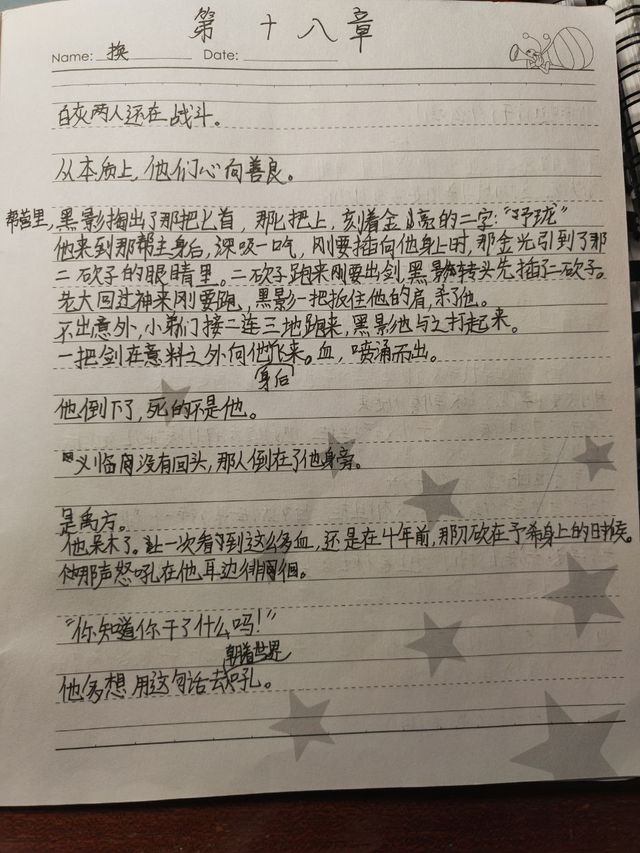 第 十八章
Name: 换 Date:
白灰两人还在战斗。
从本质上，他们心向善良。
帮营里，黑影掏出了那把匕首，那匕把上，刻着金的二字："玲珑"
他来到那帮主身后，深吸一口气，刚要插向他身上时，那金光引到了那
二砍子的眼睛里。二砍子跑来刚要出剑，黑影转头先插了二砍子。
老大回过神来刚要跑，黑影一把扳住他的肩，杀了他。
不出意外，小弟们接二连三地跑来，黑影也与之打起来。
一把剑在意料之外向他身后飞来。血，喷涌而出。
他倒下了，死的不是他。
临没有回头，那人倒在了他身旁。
是禹方。
他呆木了。上一次看到这么多血，还是在4年前，那刀砍在予希身上的时候。
他那声怒吼在他耳边徘徊。
"你知道你干了什么吗！"
他多想用这句话去朝着世界吼。